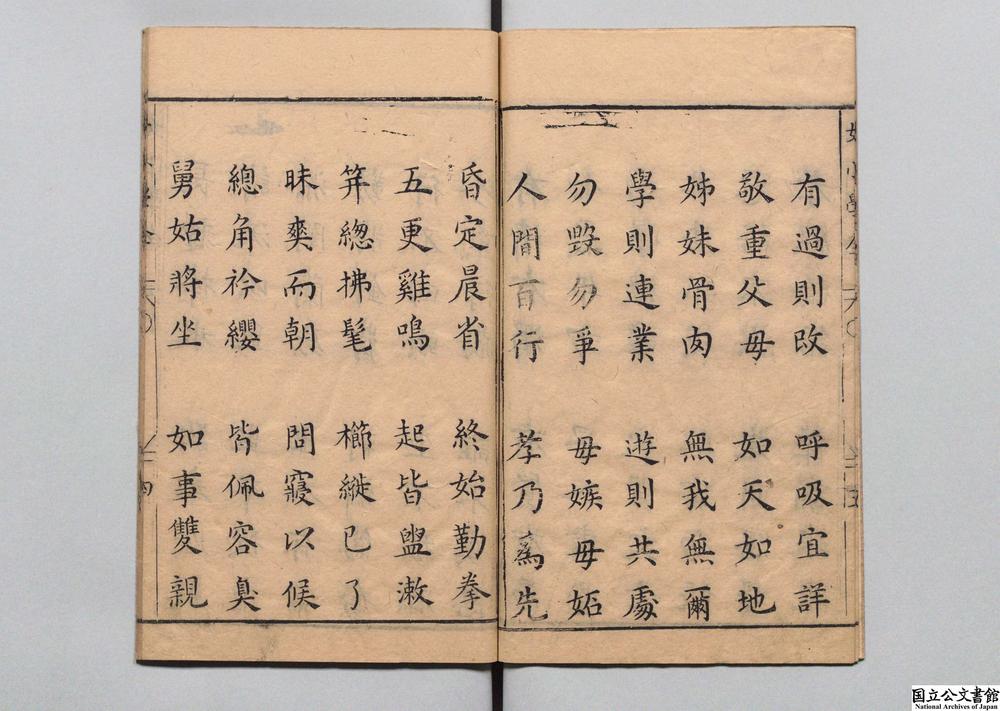 有過則改 呼吸宜詳
敬重父母 如天如地
姊妹骨肉 無我無爾
學則連業 遊則共處
勿毀勿爭 毋嫉毋妬
人間百行 孝乃爲先
昏定晨省 終始勤拳
五更雞鳴 起皆盥漱
笄總拂髦 櫛縰已了
昧爽而朝 問寢以候
總角衿纓 皆佩容臭
舅姑將坐 如事雙親
国立公文書館
National Archives of Japan